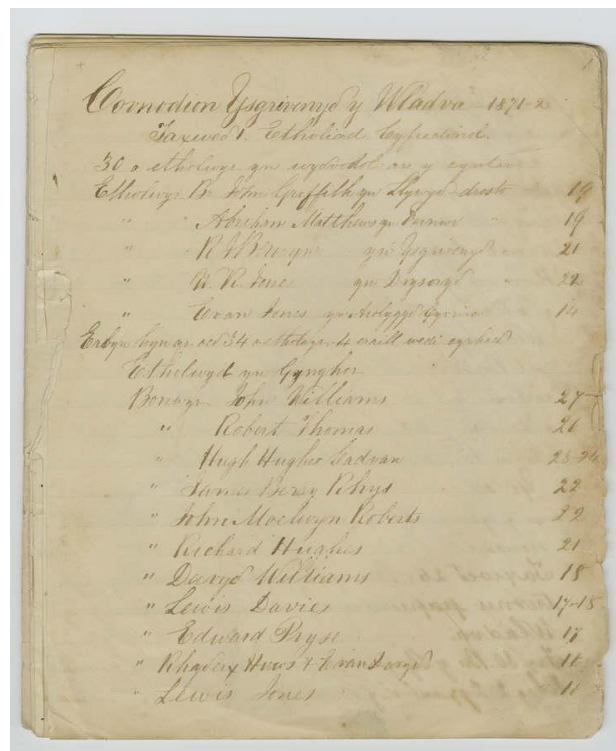 Covnodion Ysgrivenyd y Wladva 1871-2
Taxwed 1. Etholiad Cyfredind.
30 o etholwyr yn wydvodol ar y cynta
Etholwyd Br John Griffith yn Llywyd drosto 19
" " Abraham Matthews yn Varnwr " 19
" R J Berwyn yn Ysgrivenyd 21
" H. R. Jones yn Drysoryd " 22
" Evan Jones yn Arolygyd 14
Erbyn hyn yr oed 34 o etholwyr - 4 eraill wedi cyrhaed
Etholwyd yn Gynghor
Bonwyr John Williams 27
" Robert Thomas 26
" Hugh Hughes Cadvan 23-24
" James Berry Rhys 22
" John Moelwyn Roberts 22
" Richard Hughes 21
" Davyd Williams 18
" Lewis Davies 17-18
" Edward Pryse 17
" Rhyderx Huws & Evan Davyd 11
" Lewis Jones 11